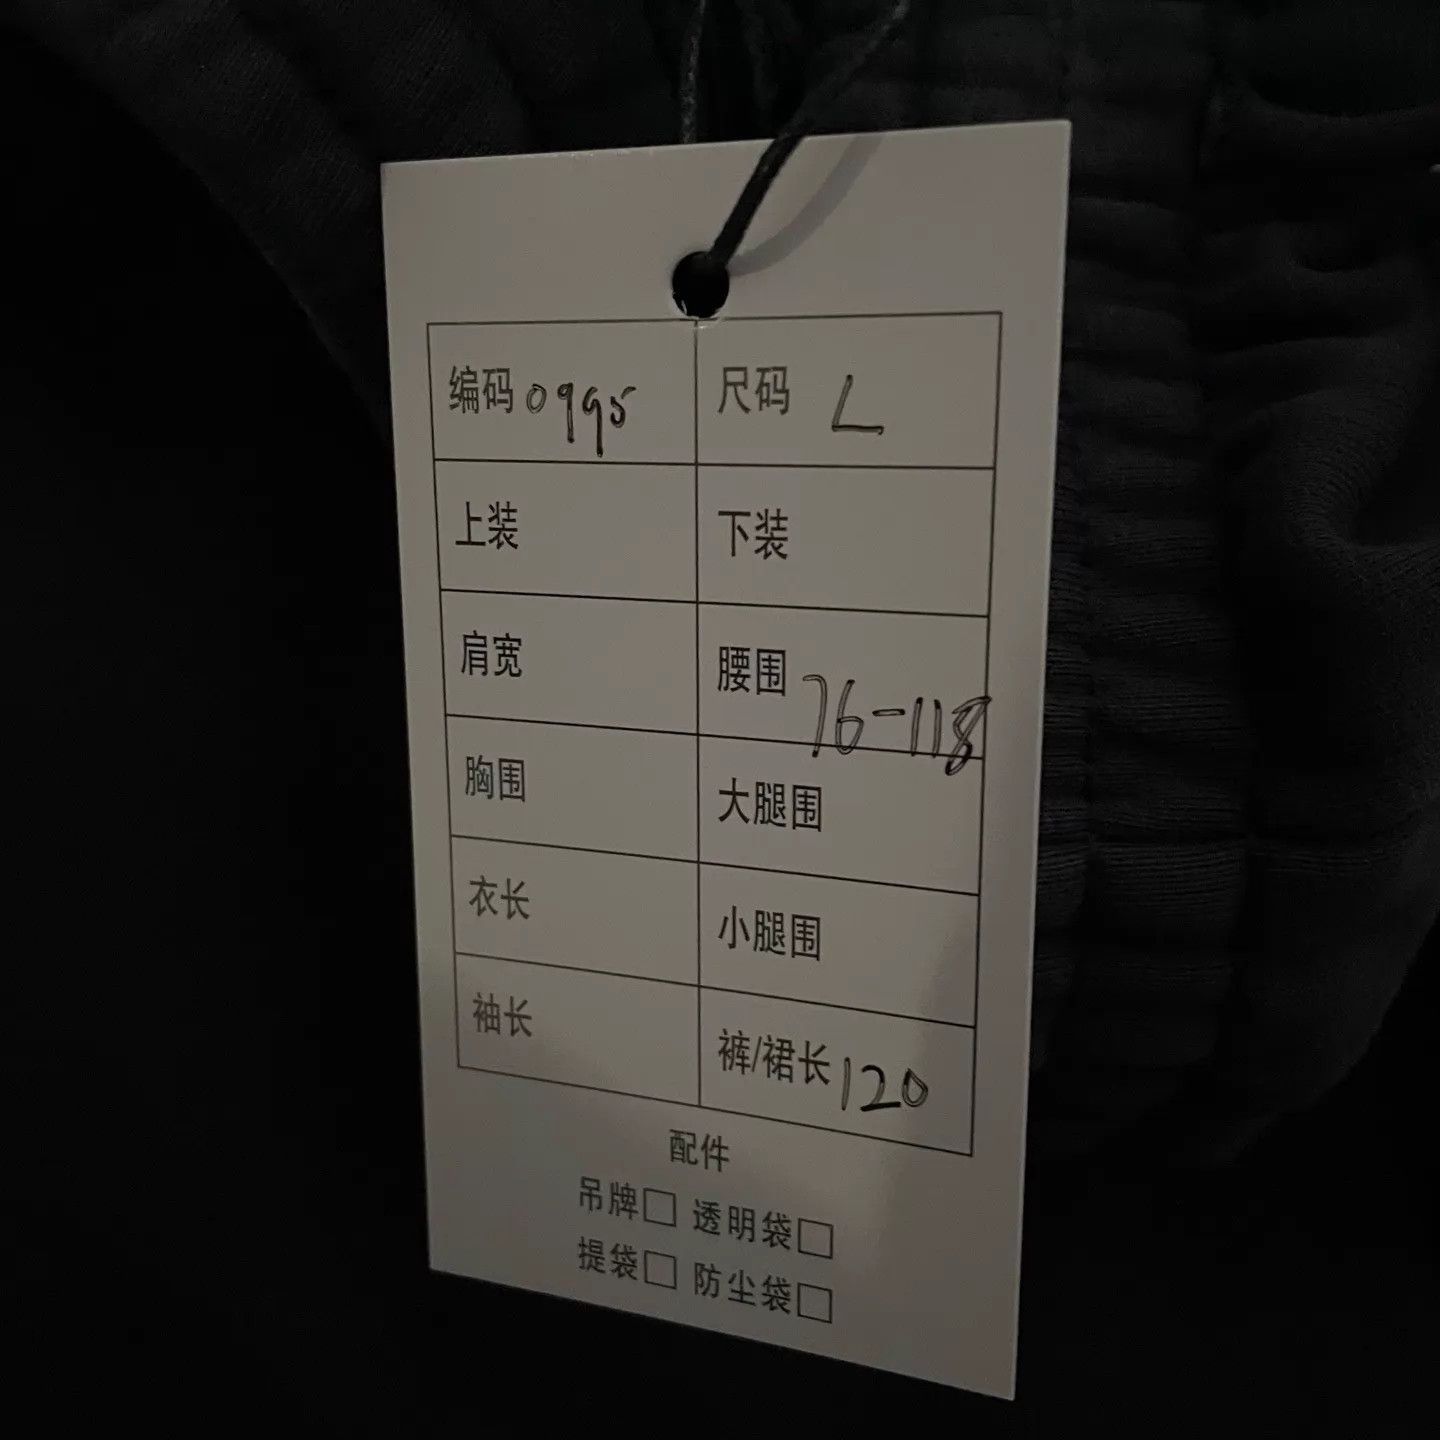 编码 0995 尺码 L
上装 下装
肩宽 腰围 76-118
胸围 大腿围
衣长 小腿围
袖长 裤/裙长 120
配件
吊牌□ 透明袋□
提袋□ 防尘袋□